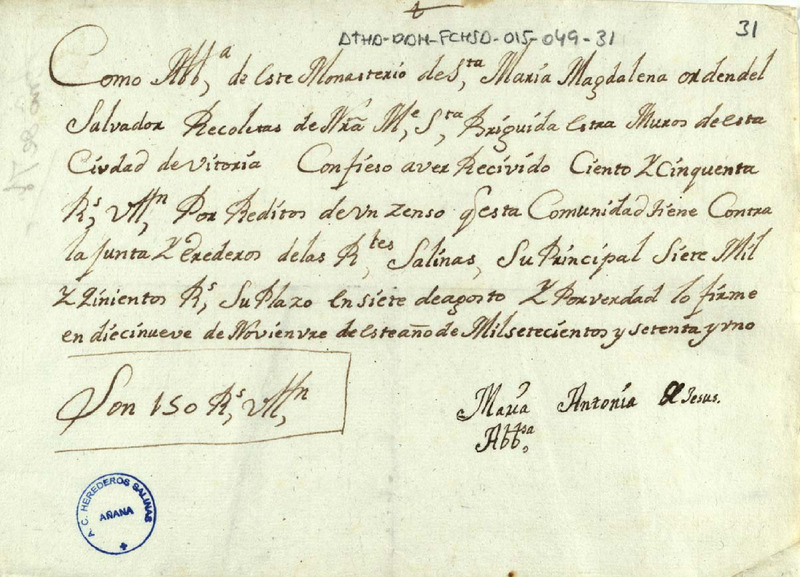 ATHA-DAH-FCHSA-015-049-31
31
Como Abb,ª de este Monasterio de S,ta Maria Magdalena orden del
Salvador Recoletas de Nrã M,e S,ta Briguida Estra Muros de esta
Ciudad de Vitoria Confieso aver Recivido Ciento Y Cinquenta
R,s Vll,n Por Reditos de Vn Zenso q esta Comunidad tiene Contra
la Junta Y Erederos de las R,tes Salinas, Su Principal Siete Mil
Y Qinientos R,s Su Plazo en siete de agosto Y Por verdad lo firme
en diecinueve de Novienvre de este año de Mil setecientos y setenta y vno
Son 150 R,s Vll,n
Maria Antonia de Jesus.
Abb,sa
A. C. HEREDEROS SALINAS
AÑANA